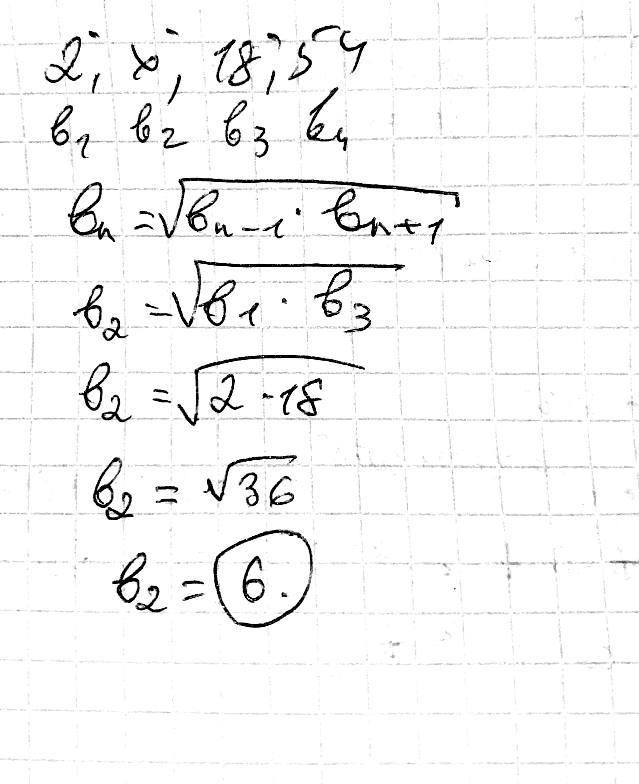 2; x; 18; 54
b₁ b₂ b₃ b₄
bₙ = √(bₙ₋₁ · bₙ₊₁)
b₂ = √(b₁ · b₃)
b₂ = √(2 · 18)
b₂ = √36
b₂ = 6.